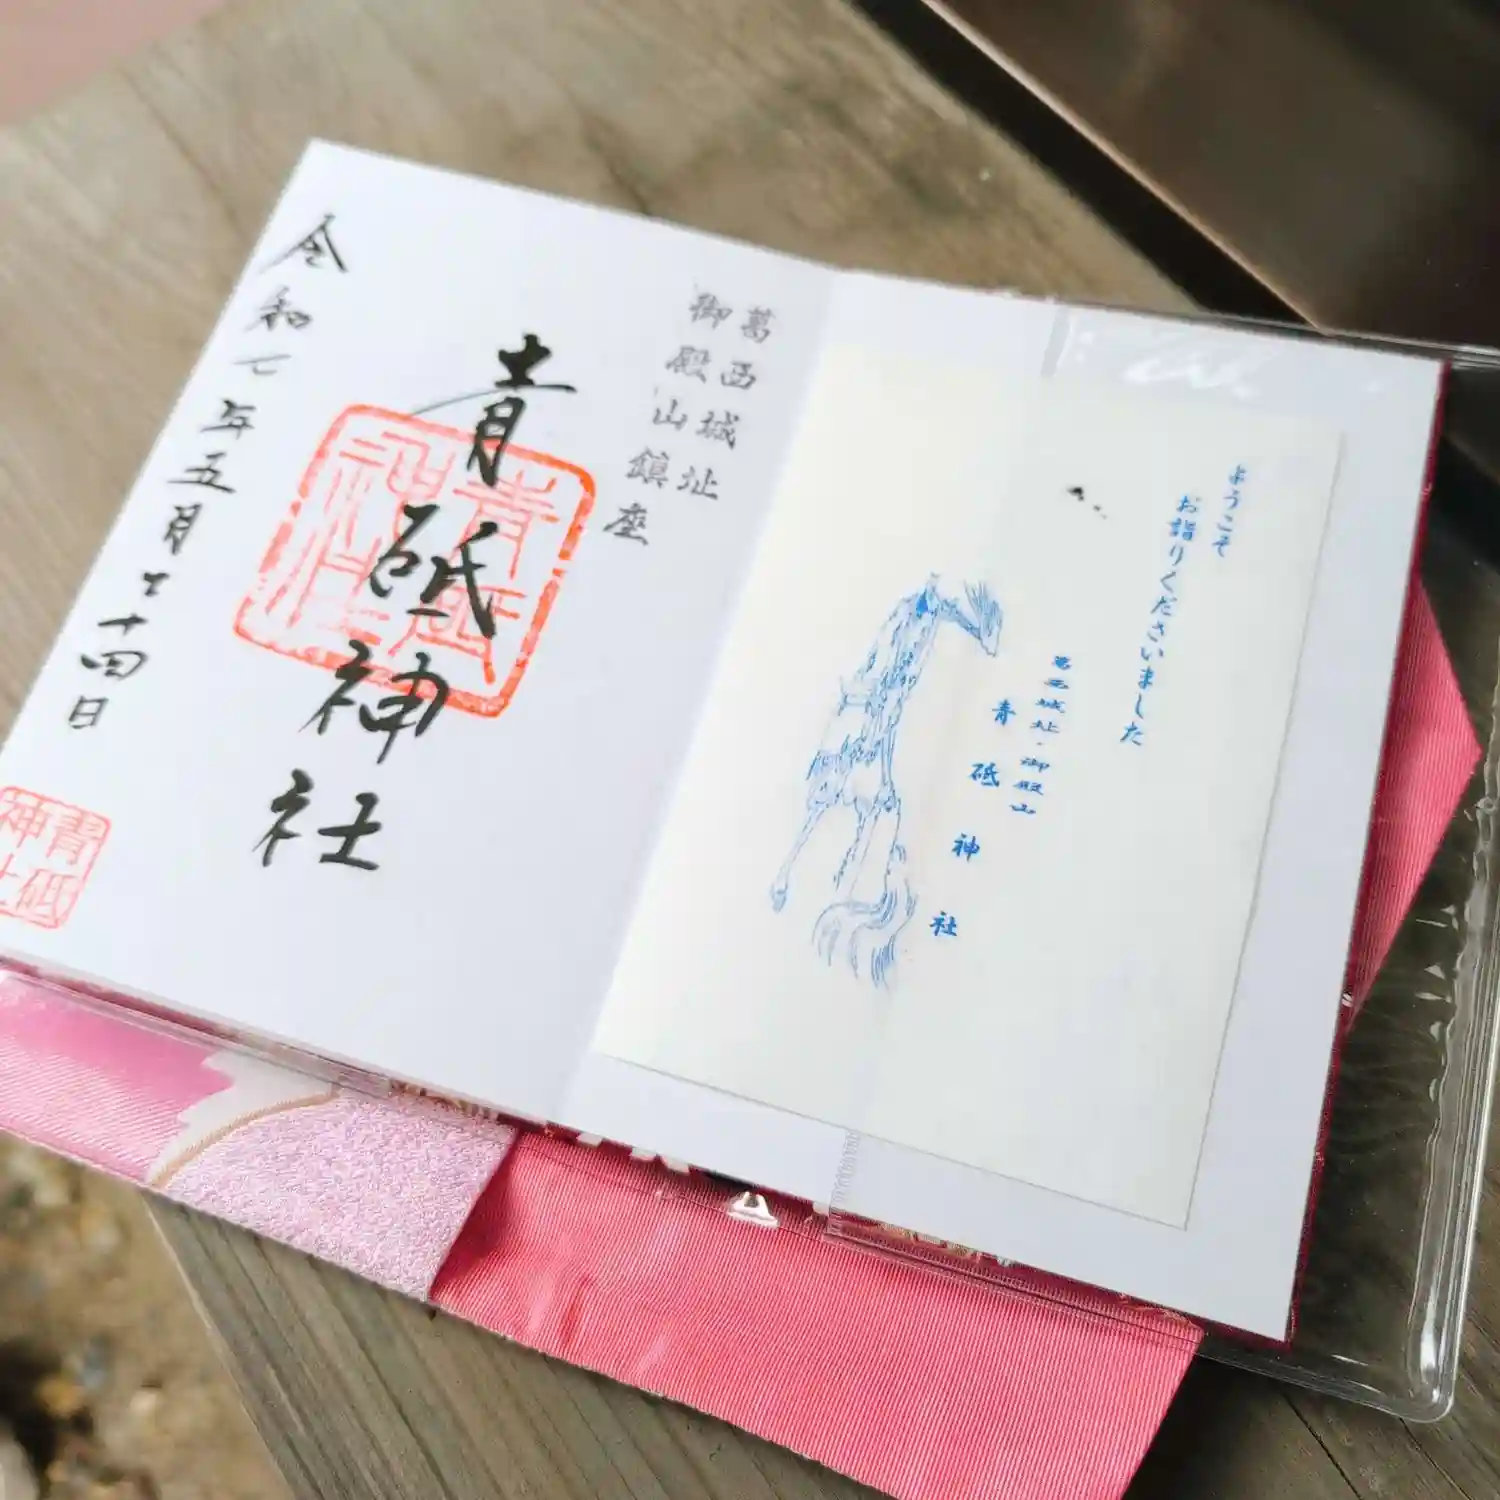 ようこそ
お詣りくださいました
葛西城址・御殿山
青砥神社
葛西城址
御殿山鎮座
青砥神社
令和七年五月二十四日
青砥
神社
青砥
神社